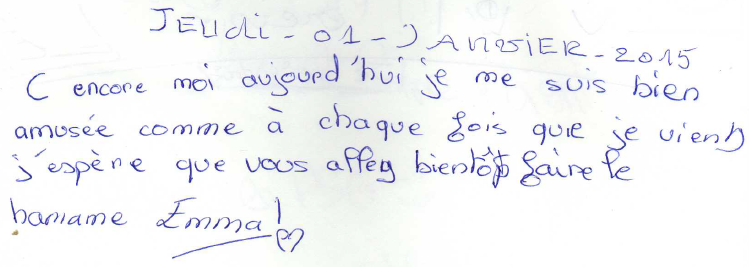 JEUdi - 01 - JANViER - 2015
C encore moi aujourd'hui je me suis bien
amusée comme à chaque fois que je vients
j'espère que vous allez bientôt faire le
hamame Emma!